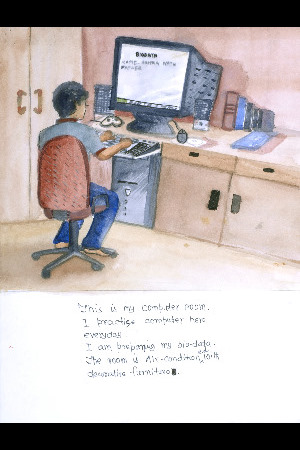 BIODATA
This is my computer room.
I practise computer here
everyday.
I am preparing my bio-data.
The room is Air-condition, with
decorative furniture.